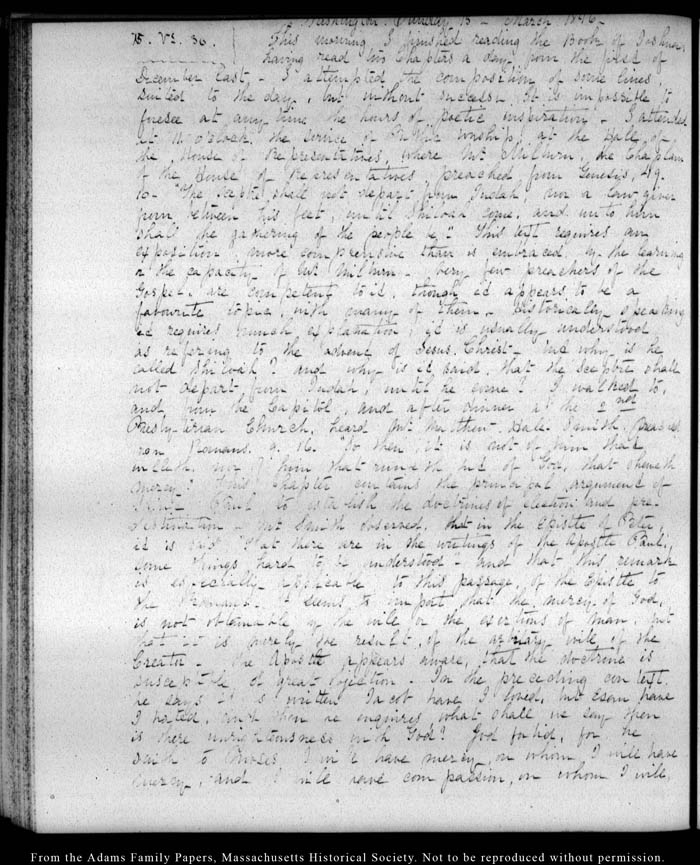 Washington. Sunday 15 - March 1846 -
15. VI. 30. This morning I finished reading the Book of Joshua,
having read two Chapters a day, from the first of
December last - I attempted the composition of some lines
suited to the day, but without success. It is impossible to
foresee at any time the hours of poetic inspiration - I attended
at 11 O'Clock the service of Public worship, at the Hall, of
the House of Representatives, where Mr Milburn, the Chaplain
of the House of Representatives preached, from Genesis, 49.
10. "The sceptre shall not depart from Judah, nor a law giver
from between his feet, until Shiloah come, and unto him
shall the gathering of the people be." This text requires an
exposition more comprehensive than is embraced by the learning
or the capacity of Mr Milburn - very few preachers of the
Gospel, are competent to it, though it appears to be a
favourite topic, with many of them. Historically speaking
it requires much explanation, it is usually understood
as referring to the advent of Jesus Christ - but why is he
called Shiloah? and why is it said, that the sceptre shall
not depart from Judah, until he come? I walked to,
and from the Capitol, and after dinner at the 2nd
Presbyterian Church, heard Mr Matthew Hale Smith, preached
from Romans. 9. 16. "So then, it is not of him that
willeth, nor of him that runneth but of God, that sheweth
mercy." This chapter contains the principal argument of
Saint Paul to establish the doctrines of election and pre-
destination - Mr Smith observed, that in the Epistle of Peter,
it is said that there are in the writings of the Apostle Paul,
some things hard to be understood - and that this remark
is especially applicable to this passage, of the Epistle to
the Romans. It seems to import that the mercy of God,
is not obtainable by the will or the exertions of man, but
that it is purely the result, of the arbitrary will of the
Creator - The Apostle appears aware, that the doctrine is
susceptible of great objection - In the preceding context,
he says it is written Jacob have I loved, but Esau have
I hated, and then he enquires what shall we say then
is there unrighteousness with God? God forbid, for he
saith to Moses, I will have mercy on whom I will have
mercy, and I will have compassion, on whom I will,
From the Adams Family Papers, Massachusetts Historical Society. Not to be reproduced without permission.